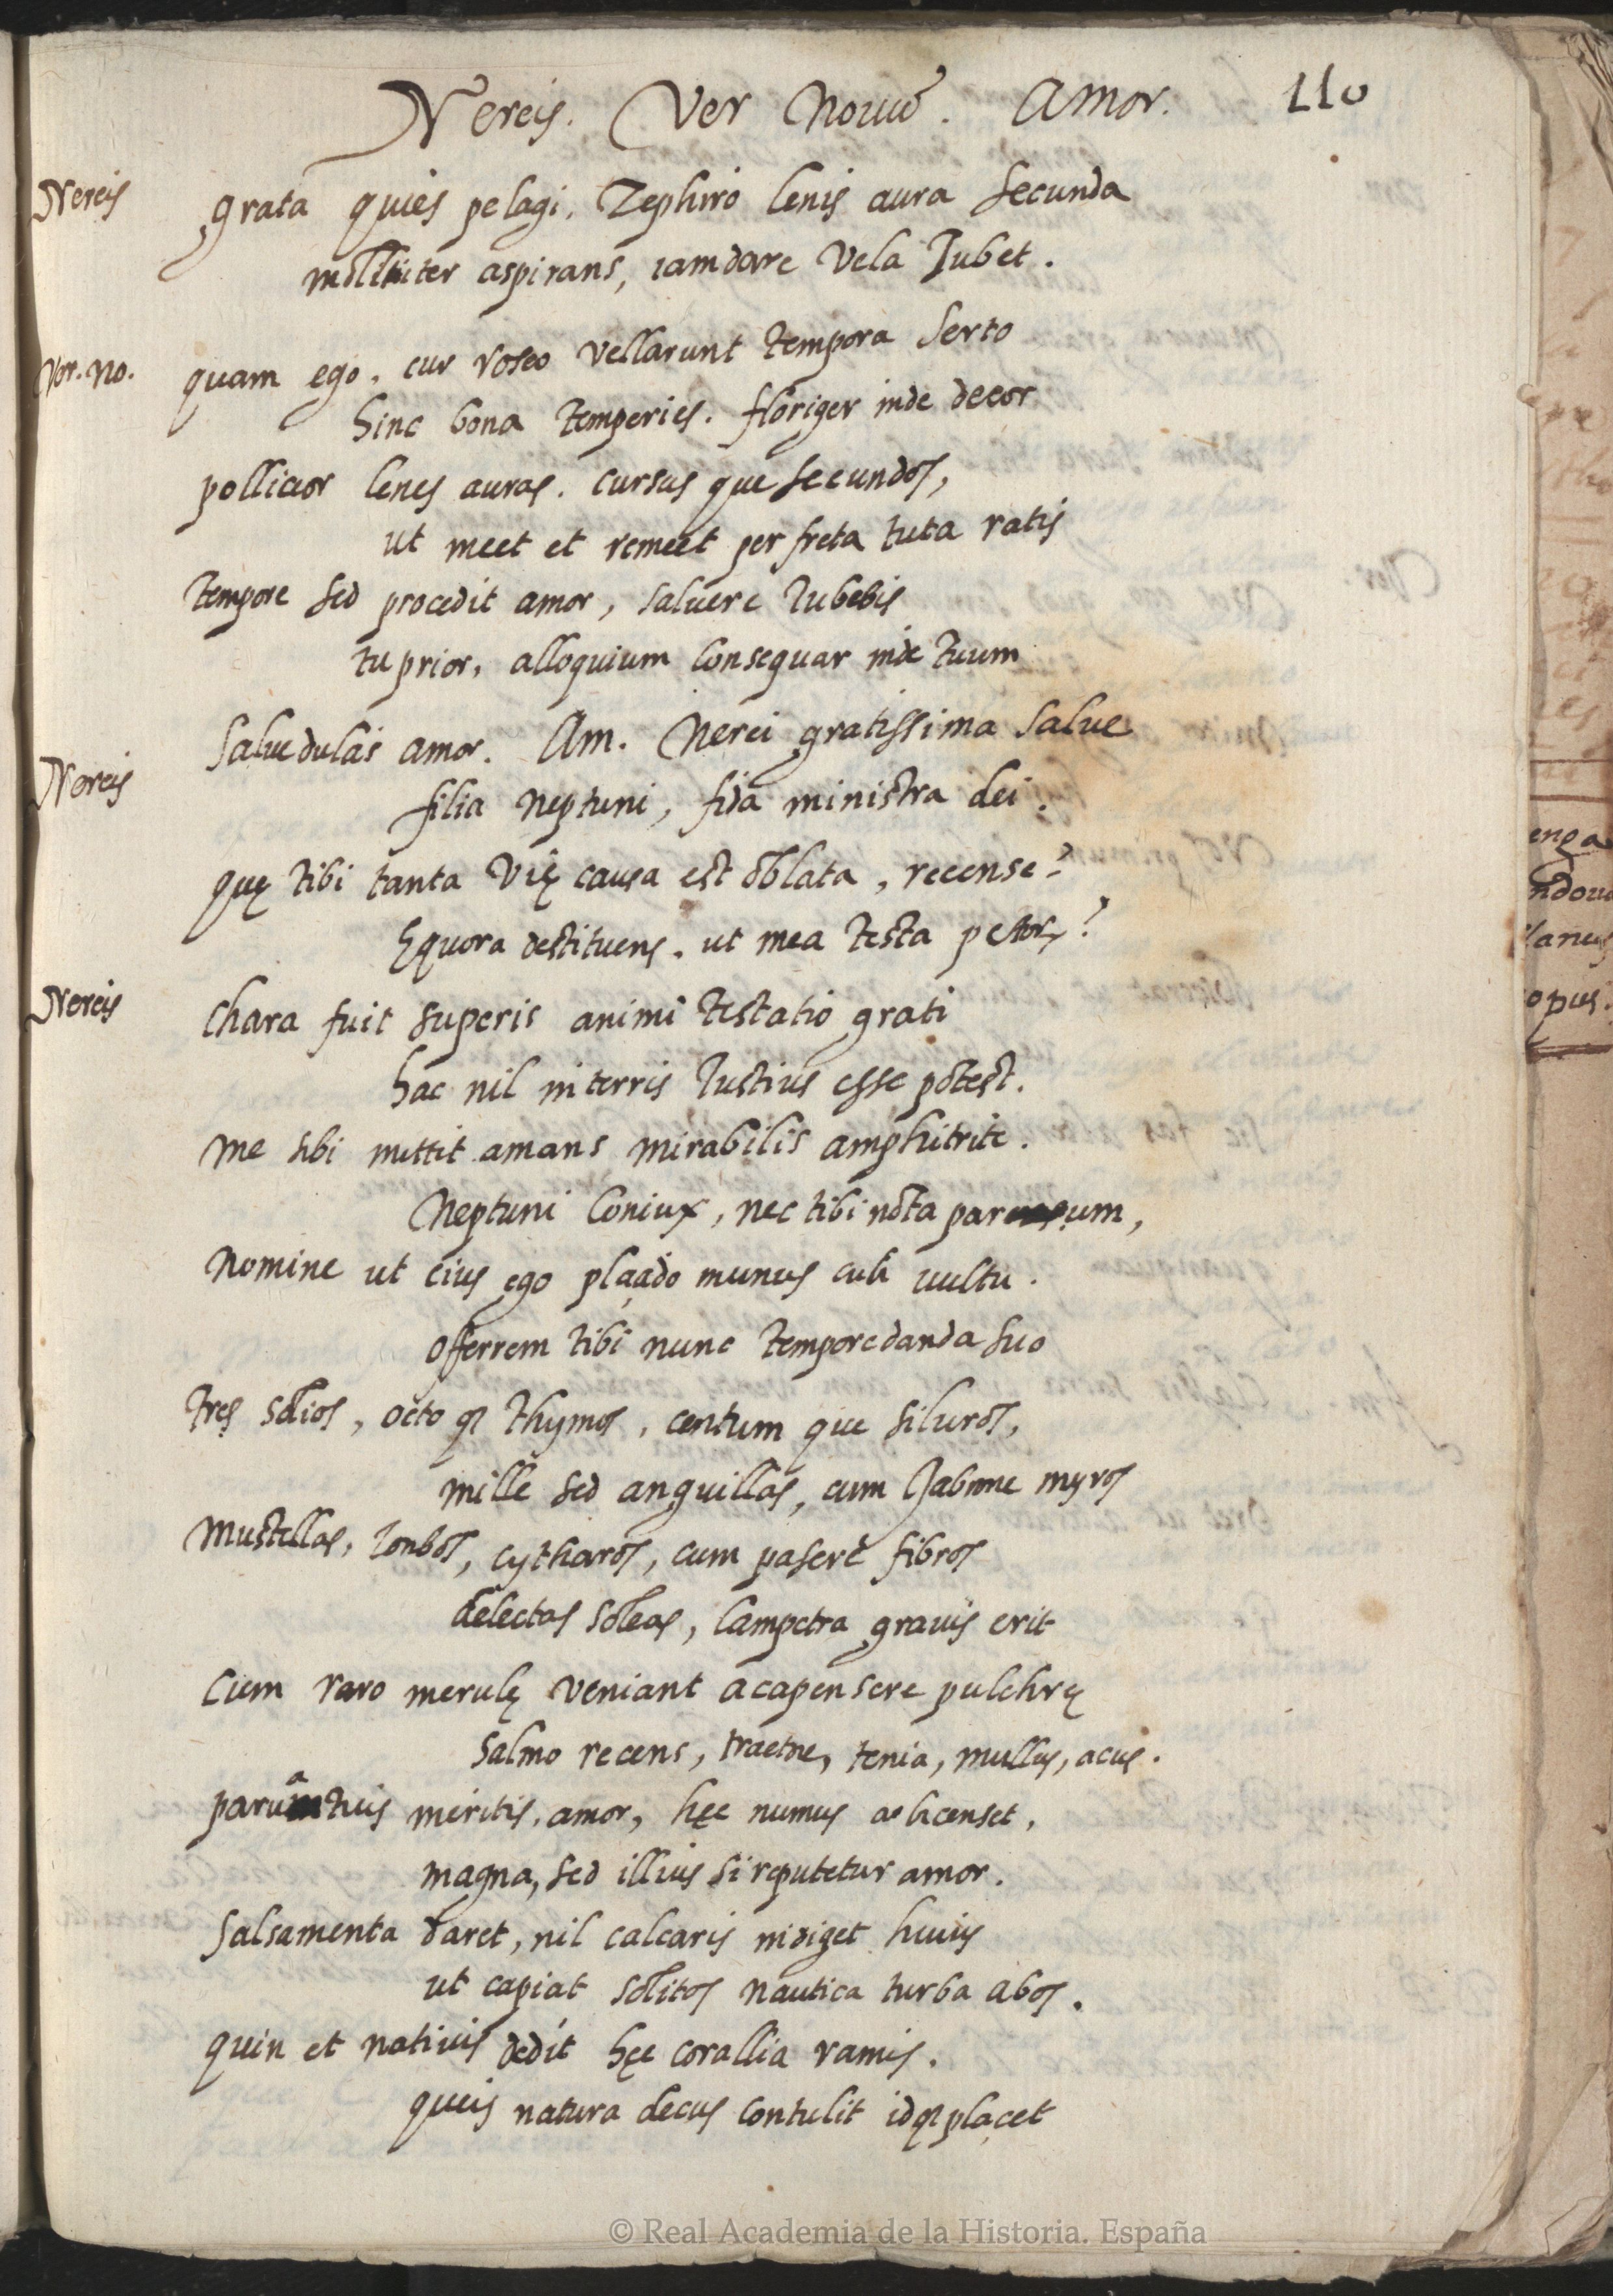 Nereis. Ver Nouũ. Amor. 110
Nereis grata quies pelagi, Zephiro lenis aura secunda
molliter aspirans, iam dare vela Iubet.
Ver. no. quam ego, cur roseo vellarunt tempora serto
hinc bona temperies. floriger inde decor
polliceor lenes auras. cursus que secundos,
ut meet et remeet per freta tuta ratis
tempore sed procedit amor, saluere Iubebis
tu prior, alloquium consequar inde tuum
Nereis Salue dulcis amor. Am. Nerei gratissima salue
filia neptuni, fida ministra dei.
quę tibi tanta vię causa est oblata, recense?
Ęquora destituens. ut mea testa petor?
Nereis chara fuit superis animi testatio grati
hac nil in terris Iustius esse potest.
me tibi mittit amans mirabilis amphitrite.
Neptuni coniux, nec tibi nota parum,
Nomine ut eius ego placido munus cuti uultu.
offerrem tibi nunc tempore danda suo
tres solios, octo q; thymos, centum que siluros,
mille sed anguillas, cum Iabrone myros
Mustellas, Ionbos, cytharos, cum pasere fibros
delectas soleas, lampetra grauis erit
Cum raro merulę veniant acapensere pulchrę
salmo recens, tenia, mullus, acus.
parua tuis meritis, amor, hęc numus accenset,
magna, sed illius si reputetur amor.
Salsamenta daret, nil calcaris indiget huius
ut capiat solitos nautica turba cibos.
quin et natiuis dedit hęc corallia ramis.
queis natura decus contulit idq; placet
engа
ndou
lanus
opus.
© Real Academia de la Historia. España